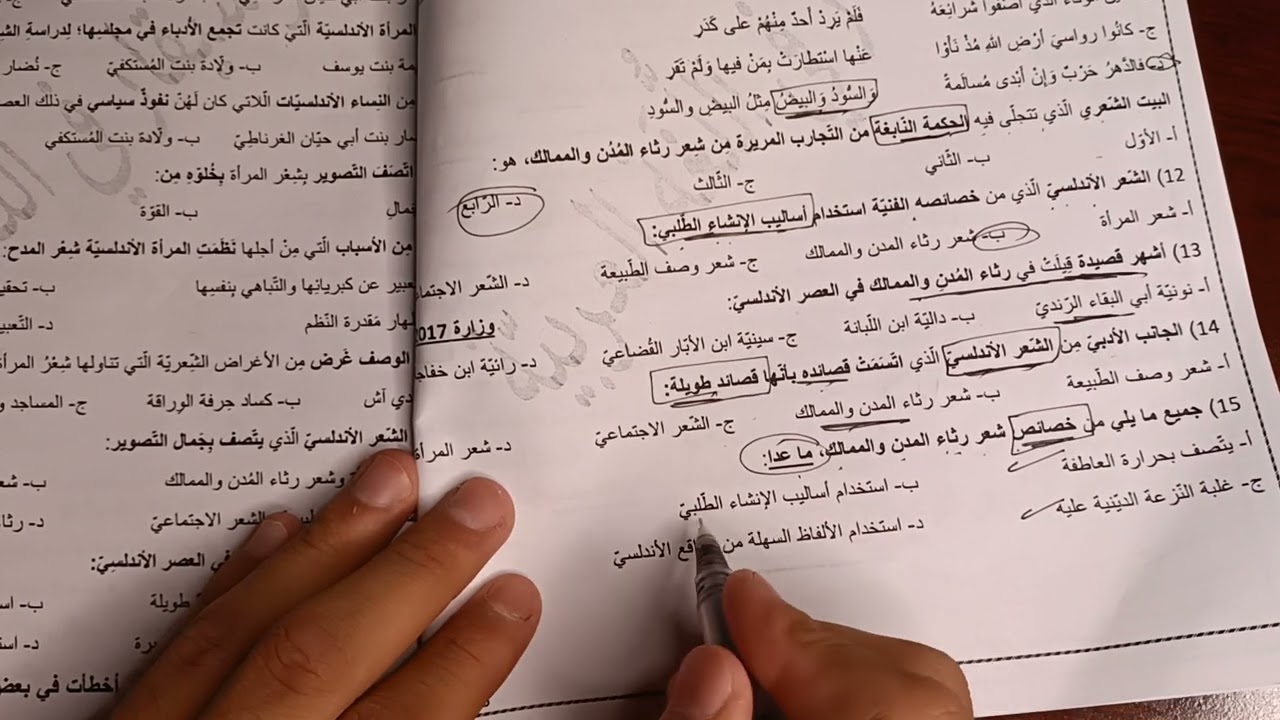 فَلَمْ يَرِدْ أحدٌ مِنْهُمْ على كَدَرِ
ج- كانُوا رواسيَ أرْضِ اللهِ مُذْ نَأَوْا
عَنْها اسْتطارَتْ بِمَنْ فيها وَلَمْ تَقَرِ
د- فالدَّهرُ حَرْبٌ وَإنْ أبْدى مُسالَمةً
وَالسُّودُ وَالبيضُ مِثْلُ البيضِ والسُّودِ
البيت الشّعري الّذي تتجلّى فيه الحكمة النّابغة من التّجارب المريرة مِن شعر رثاء المُدن والممالك، هو:
أ- الأوّل
ب- الثّاني
ج- الثّالث
د- الرّابع
12) الشّعر الأندلسيّ الّذي من خصائصه الفنيّة استخدام أساليب الإنشاء الطّلبي:
أ- شعر المرأة
ب- شعر رثاء المدن والممالك
ج- شعر وصف الطّبيعة
د- الشّعر الاجتما
13) أشهر قصيدة قِيلَتْ في رثاء المُدنِ والممالك في العصر الأندلسيّ:
وزارة 2017
أ- نونيّة أبي البقاء الرّنديّ
ب- داليّة ابن اللّبانة
ج- سينيّة ابن الأبّار القُضاعيّ
د- رائيّة ابن خفاج
14) الجانب الأدبيّ مِنَ الشّعر الأندلسيّ الّذي اتّسَمَتْ قصائده بأنّها قصائد طويلة:
أ- شعر وصف الطّبيعة
ب- شعر رثاء المدن والممالك
ج- الشّعر الاجتماعيّ
د- شعر المرأة
15) جميع ما يلي من خصائص شعر رثاء المدن والممالك، ما عدا:
أ- يتّصف بحرارة العاطفة
ب- استخدام أساليب الإنشاء الطّلبيّ
ج- غلبة النّزعة الديّنية عليه
د- استخدام الألفاظ السهلة من الأندلسيّ
المرأة الأندلسيّة الّتي كانت تجمع الأدباء في مجلسِها؛ لدراسةِ
مة بنت يوسف
ب- ولّادة بنت المُستكفيّ
ج- نُضار
مِن النساء الأندلسيّات اللّاتي كان لَهُنّ نفوذٌ سياسي في ذلك العصر
ار بنت أبي حيّان الغرناطيّ
ب- ولّادة بنت المُستكفي
اتّصَفَ التّصوير بِشِعْر المرأة بِخُلوّه مِن:
ب- القوّة
مِن الأسباب الّتي مِنْ أجلها نَظَمَتِ المرأة الأندلسيّة شِعْر المدح:
عبير عن كبريائِها والتّباهي بِنفسِها
ب- تحقي
هار مَقدرة النّظم
د- التّعبي
الوصف غَرض مِن الأغراض الشّعريّة الّتي تناولها شِعْرُ المرأة
دي آش
ب- كساد حِرفة الوِراقة
ج- المساجد و
الشّعر الأندلسيّ الّذي يتّصف بِجَمال التّصوير:
وشعر رثاء المُدن والممالك
الشّعر الاجتماعيّ
د- رثا
في العصر الأندلسيّ:
طويلة
ب- اس
د- است
أخطأت في بعض